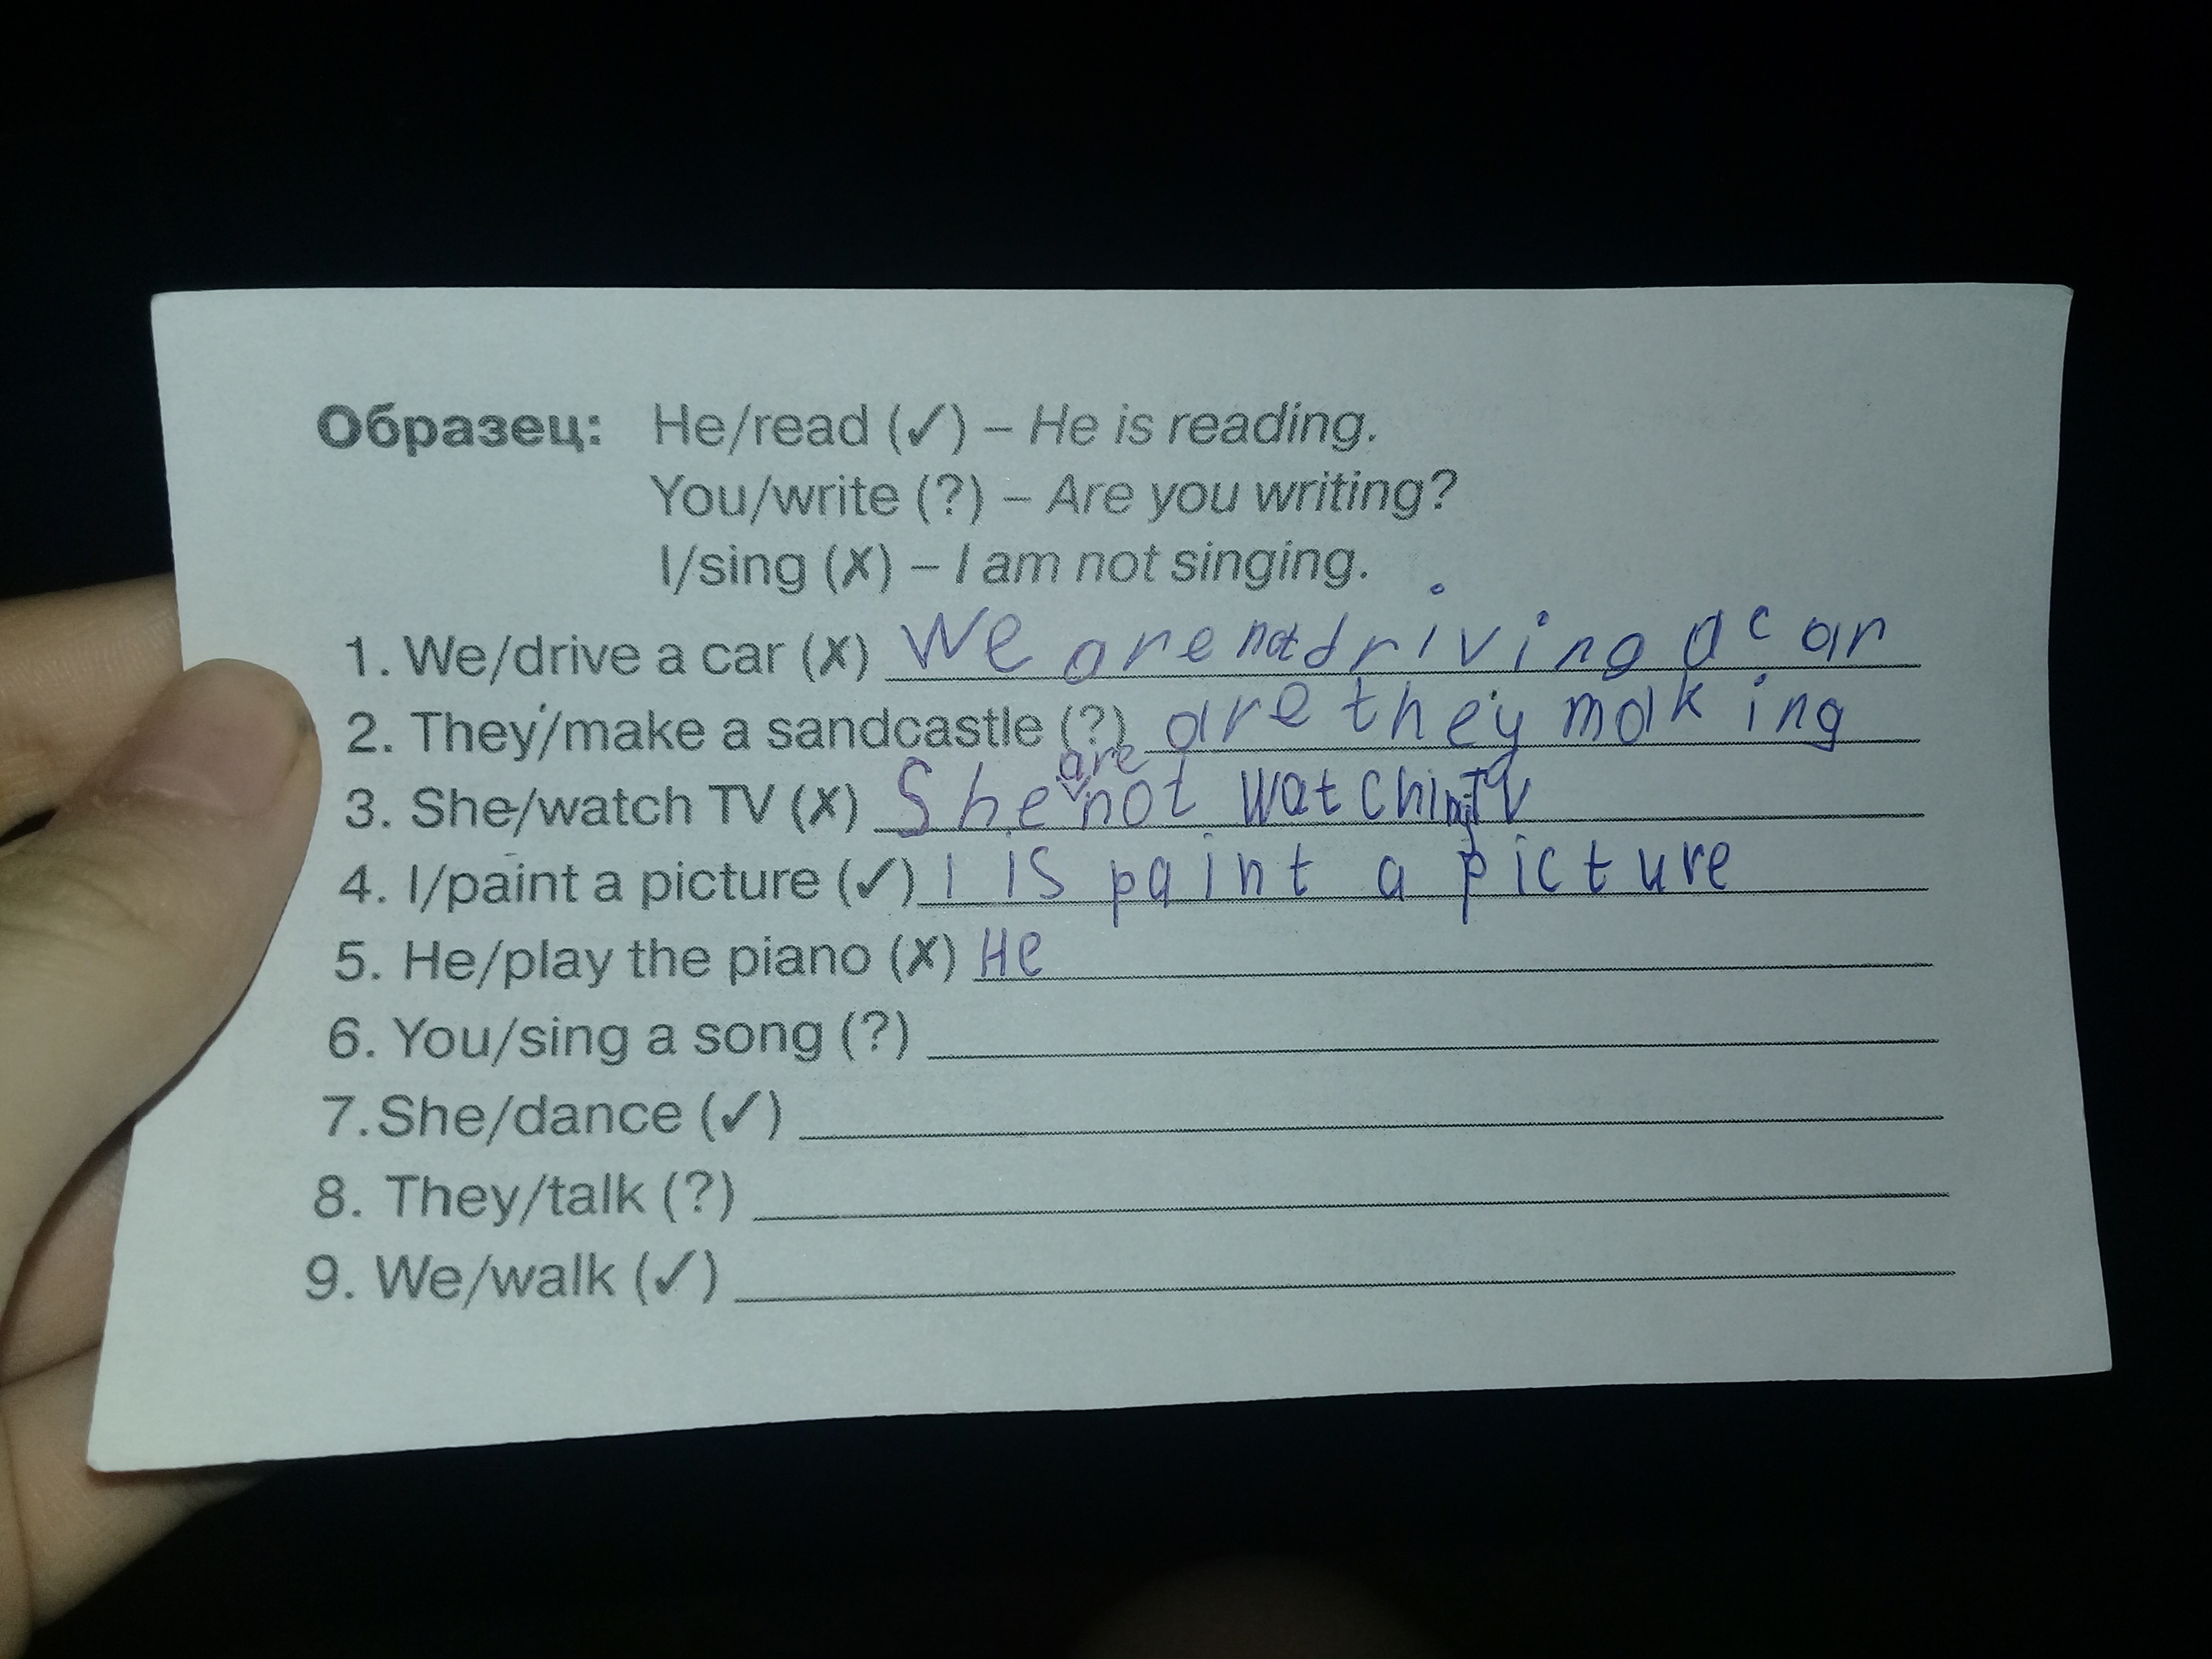 Образец: He/read (✓) – He is reading.
You/write (?) – Are you writing?
I/sing (✗) – I am not singing.
1. We/drive a car (✗) We are not driving a car
2. They/make a sandcastle (?) are they making
3. She/watch TV (✗) She are not watching TV
4. I/paint a picture (✓) I is paint a picture
5. He/play the piano (✗) He
6. You/sing a song (?)
7. She/dance (✓)
8. They/talk (?)
9. We/walk (✓)